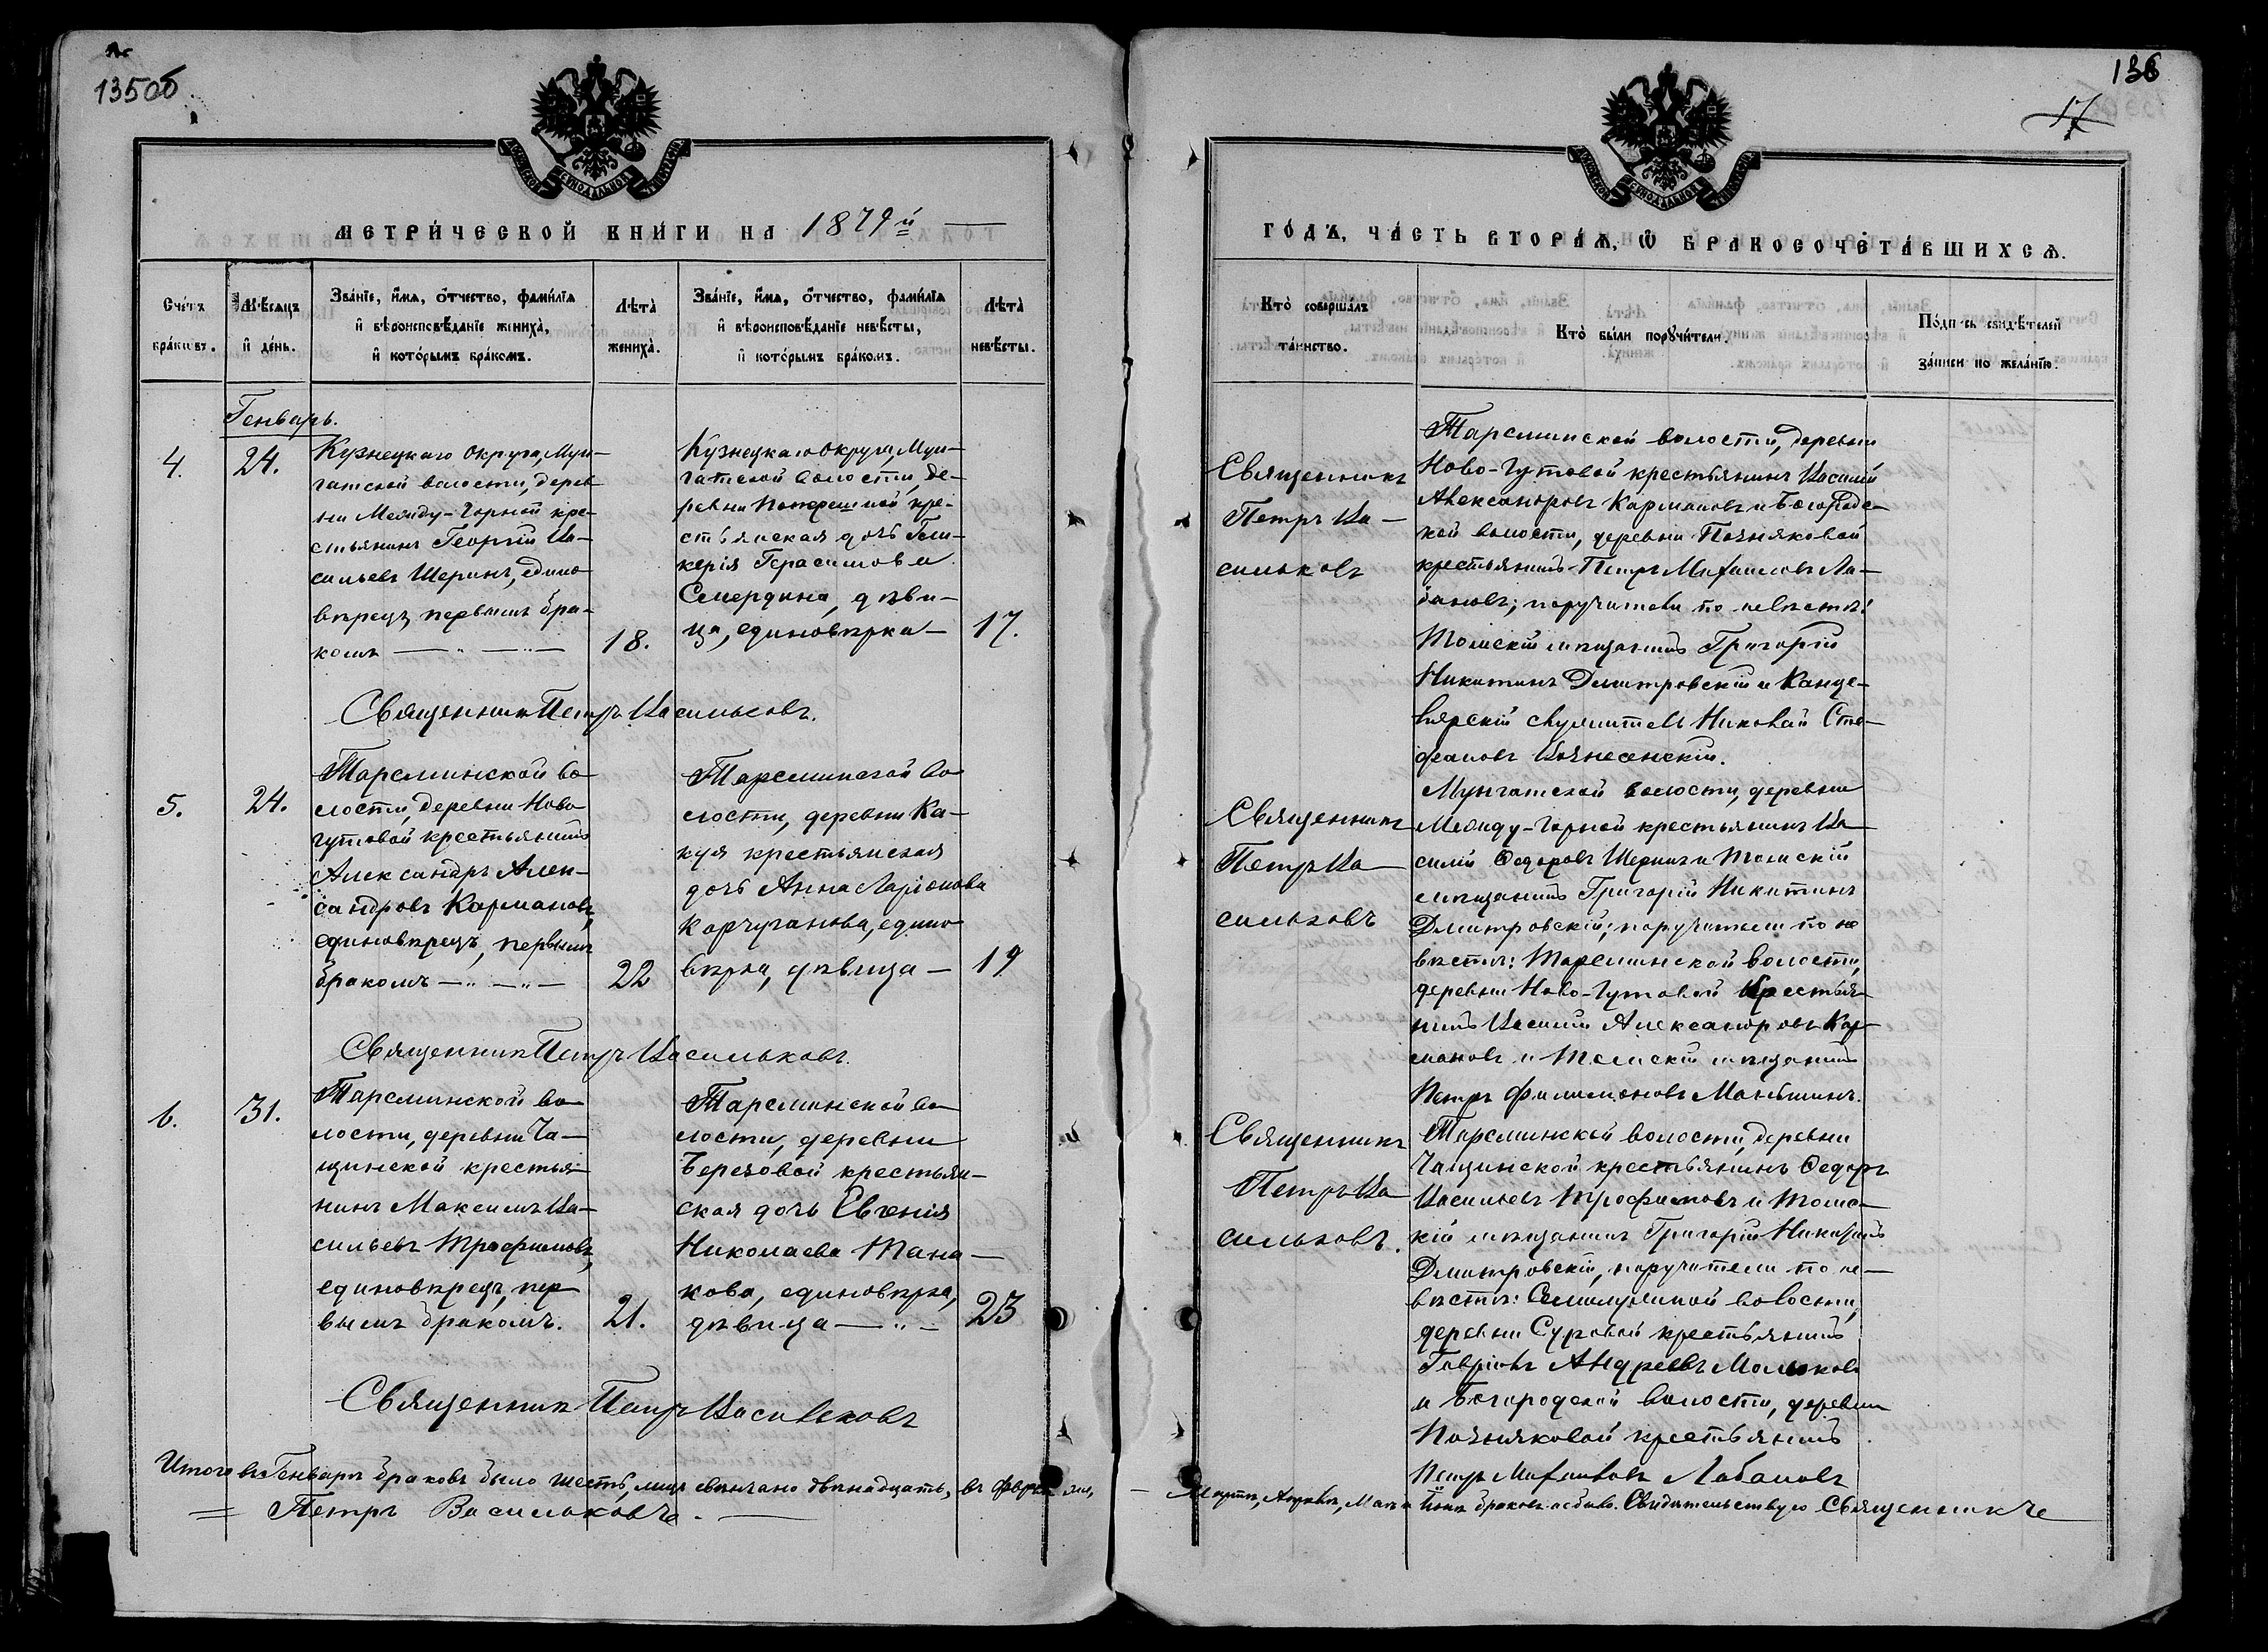 135об
136
17
МОСКОВСКОЙ СѴНОДАЛЬНОЙ ТИПОГРАФІИ
МЕТРИЧЕСКОЙ КНИГИ НА 1879й
Счетъ браковъ.
Мѣсяцъ и день.
Званіе, имя, отчество, фамилія
и вѣроисповѣданіе жениха,
и которымъ бракомъ.
Лѣта
жениха.
Званіе, имя, отчество, фамилія
и вѣроисповѣданіе невѣсты,
и которымъ бракомъ.
Лѣта
невѣсты.
Генварь.
4.
24.
Кузнецкаго округа, Мун-
гатской волости, дерев
ни Между-Горной кре-
стьянинъ Георгій Ва-
сильевъ Шеринъ, едино
вѣрецъ, первымъ бра-
комъ — „ — „ —
18.
Кузнецкаго округа, Мун-
гатской волости, де-
ревни Поперешной кре-
стьянская дочь Гли-
керія Герасимова
Смердина, дѣви-
ца, единовѣрка —
17.
Священникъ Петръ Васильковъ.
5.
24.
Тарсминской во
лости, деревни Ново
гутовой крестьянинъ
Александръ Алек-
сандровъ Кармановъ,
единовѣрецъ, первымъ
бракомъ — „ — „ —
22
Тарсминской во
лости, деревни Ка-
куя крестьянская
дочь Анна Ларіонова
Корчуганова, едино
вѣрка, дѣвица —
19
Священникъ Петръ Васильковъ.
6.
31.
Тарсминской во
лости, деревни Ча-
щинской крестья
нинъ Максимъ Ва-
сильевъ Трофимовъ,
единовѣрецъ, пер
вымъ бракомъ.
21.
Тарсминской во
лости, деревни
Березовой крестьян-
ская дочь Евгенія
Николаева Тана-
кова, единовѣрка,
дѣвица — „ —
23
Священникъ Петръ Васильковъ
Итого въ Генварѣ браковъ было шесть, лицъ свѣнчано двѣнадцать, въ Феврал
= Петръ Васильковъ. —
МОСКОВСКОЙ СѴНОДАЛЬНОЙ ТИПОГРАФІИ
ГОДЪ, ЧАСТЬ ВТОРАЯ, Ѡ БРАКОСОЧЕТАВШИХСЯ.
Кто совершалъ
таинство.
Кто были поручители.
Подпись свидѣтелей
записи по желанію.
Священникъ
Петръ Ва-
сильковъ
Тарсминской волости, деревни
Ново-Гутовой крестьянинъ Василій
Александровъ Кармановъ и Богородс-
кой волости, деревни Позняковой
крестьянинъ Петръ Михаиловъ Ла-
бановъ; поручители по невѣстѣ:
Томскій мѣщанинъ Григорій
Никитинъ Дмитровскій и Канце-
лярскій служитель Николай Сте-
фановъ Вознесенскій.
Священникъ
Петръ Ва
сильковъ
Мунгатской волости, деревни
Между-Горной крестьянинъ Ва
силій Ѳедоровъ Шеринъ и Томскій
мѣщанинъ Григорій Никитинъ
Дмитровскій; поручители по не
вѣстѣ: Тарсминской волости,
деревни Ново-Гутовой крестья
нинъ Василій Александровъ Кар-
мановъ и Томскій мѣщанинъ
Петръ Филимоновъ Маньшинъ.
Священникъ
Петръ Ва
сильковъ.
Тарсминской волости, деревни
Чащинской крестьянинъ Ѳедоръ
Васильевъ Трофимовъ и Томс-
кій мѣщанинъ Григорій Никитинъ
Дмитровскій, поручители по не-
вѣстѣ: волости,
деревни Суровой крестьянинъ
Гавріилъ Андреевъ
и Богородской волости, деревни
Позняковой крестьянинъ
Петръ Михаиловъ Лабановъ
— Мартѣ, Апрѣлѣ, Маѣ и Іюнѣ браковъ не было. Свидѣтельствую Священникъ